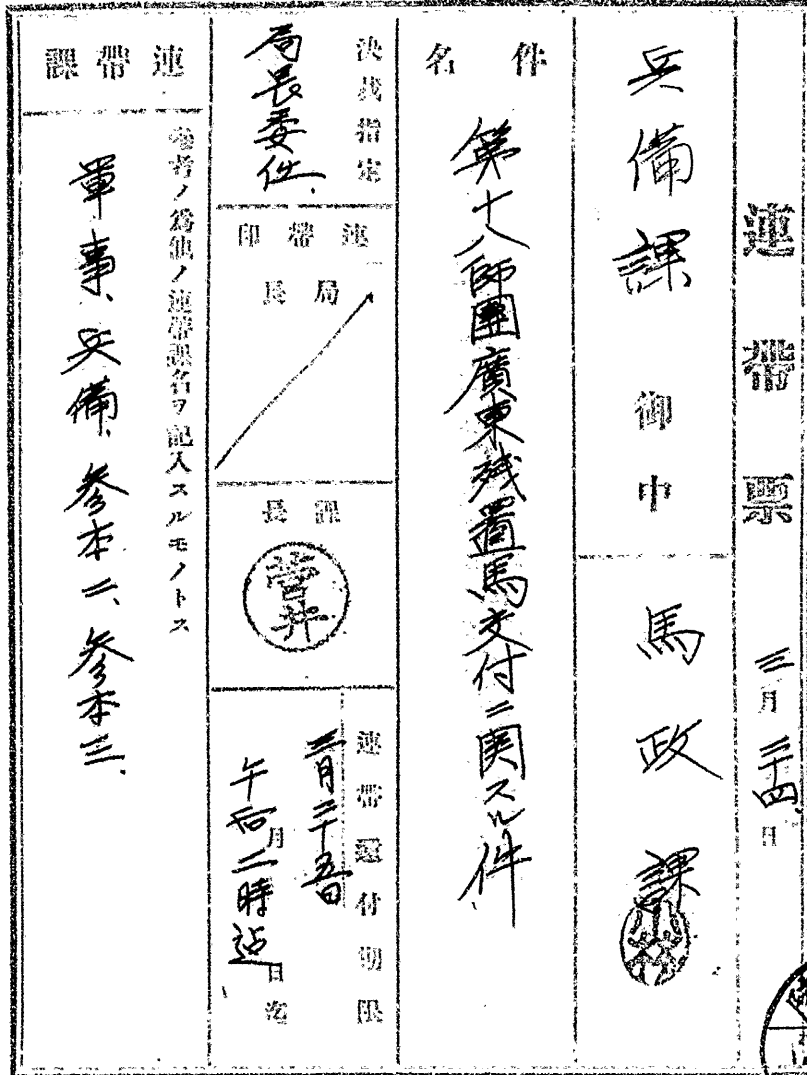 連帶票
三月二十四日
兵備課御中
馬政課
件名
第十八師團廣東残置馬交付ニ関スル件
決裁指定
局長委任、
連帶印
局長
課長
菅井
連帶還付期限
三月二十五日
午后二時迠
月日迄
連帶課
參考ノ爲他ノ連帶課名ヲ記入スルモノトス
軍事、兵備、参本二、参本三、